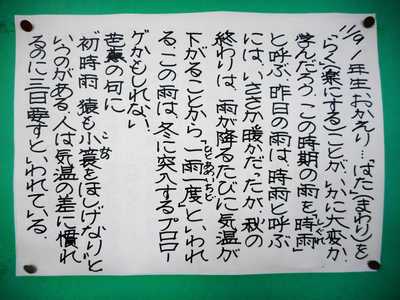 11/9 1年生、おかえり…「はた(まわり)を
らく(楽にする)」ことが、いかに大変か、
学んだろう。この時期の雨を「時雨」
と呼ぶ。昨日の雨は、時雨と呼ぶ
には、いささか暖かだったが、秋の
終わりは、雨が降るたびに気温が
下がることから、「一雨一度」といわれ
る。この雨は、冬に突入するプロロー
グかもしれない。
芭蕉の句に
「初時雨 猿も小蓑をほしげなり」と
いうのがある。人は気温の差に慣れ
るのに三日要すといわれている。